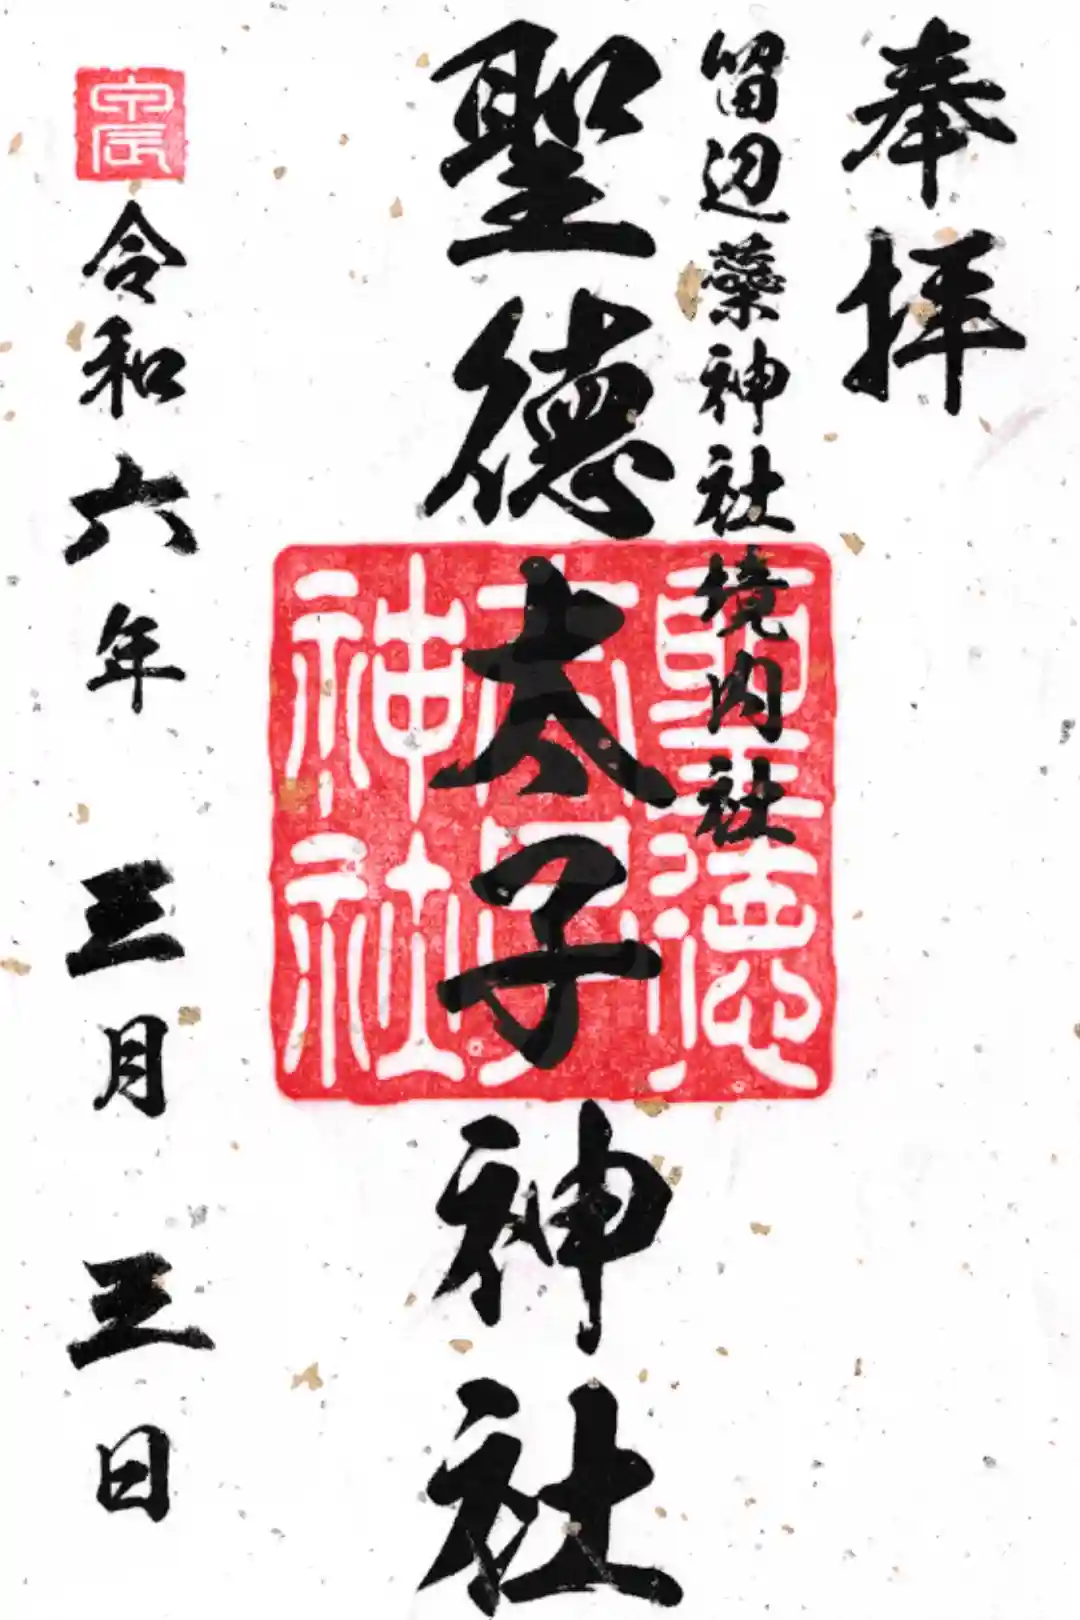 奉拝
留辺蘂神社境内社
聖徳太子神社
聖徳
太子
神社
甲辰
令和六年 三月 三日